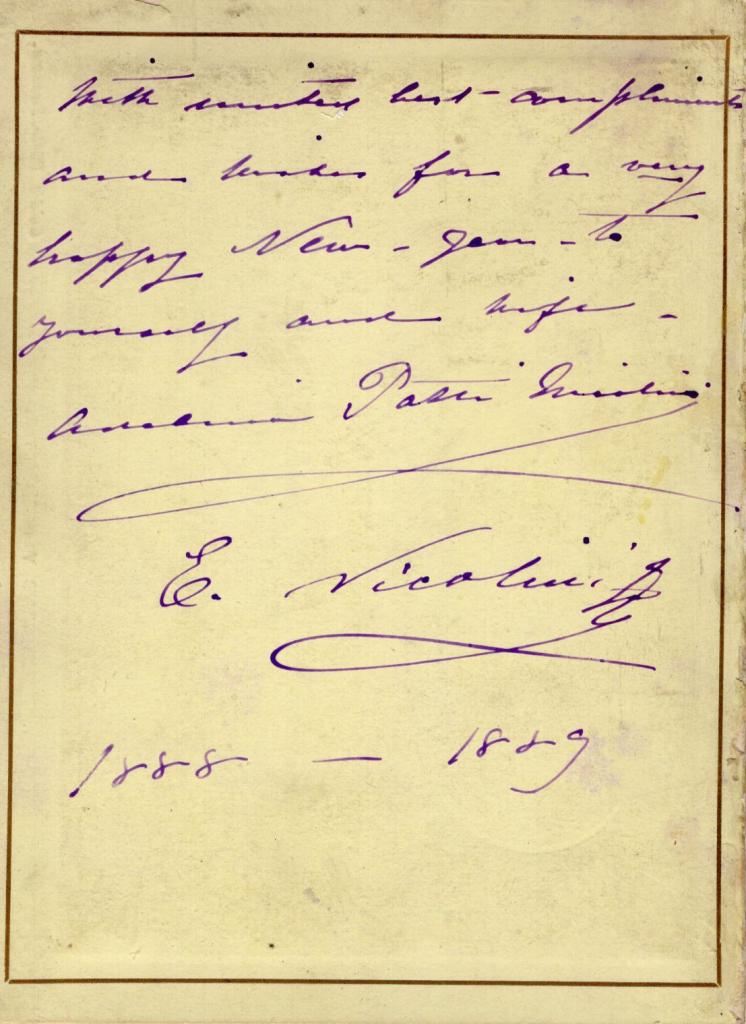 With united best compliments
and wishes for a very
happy New-year-to
yourself and wife-
Adelina Patti Nicolini
E. Nicolini
1888 — 1889